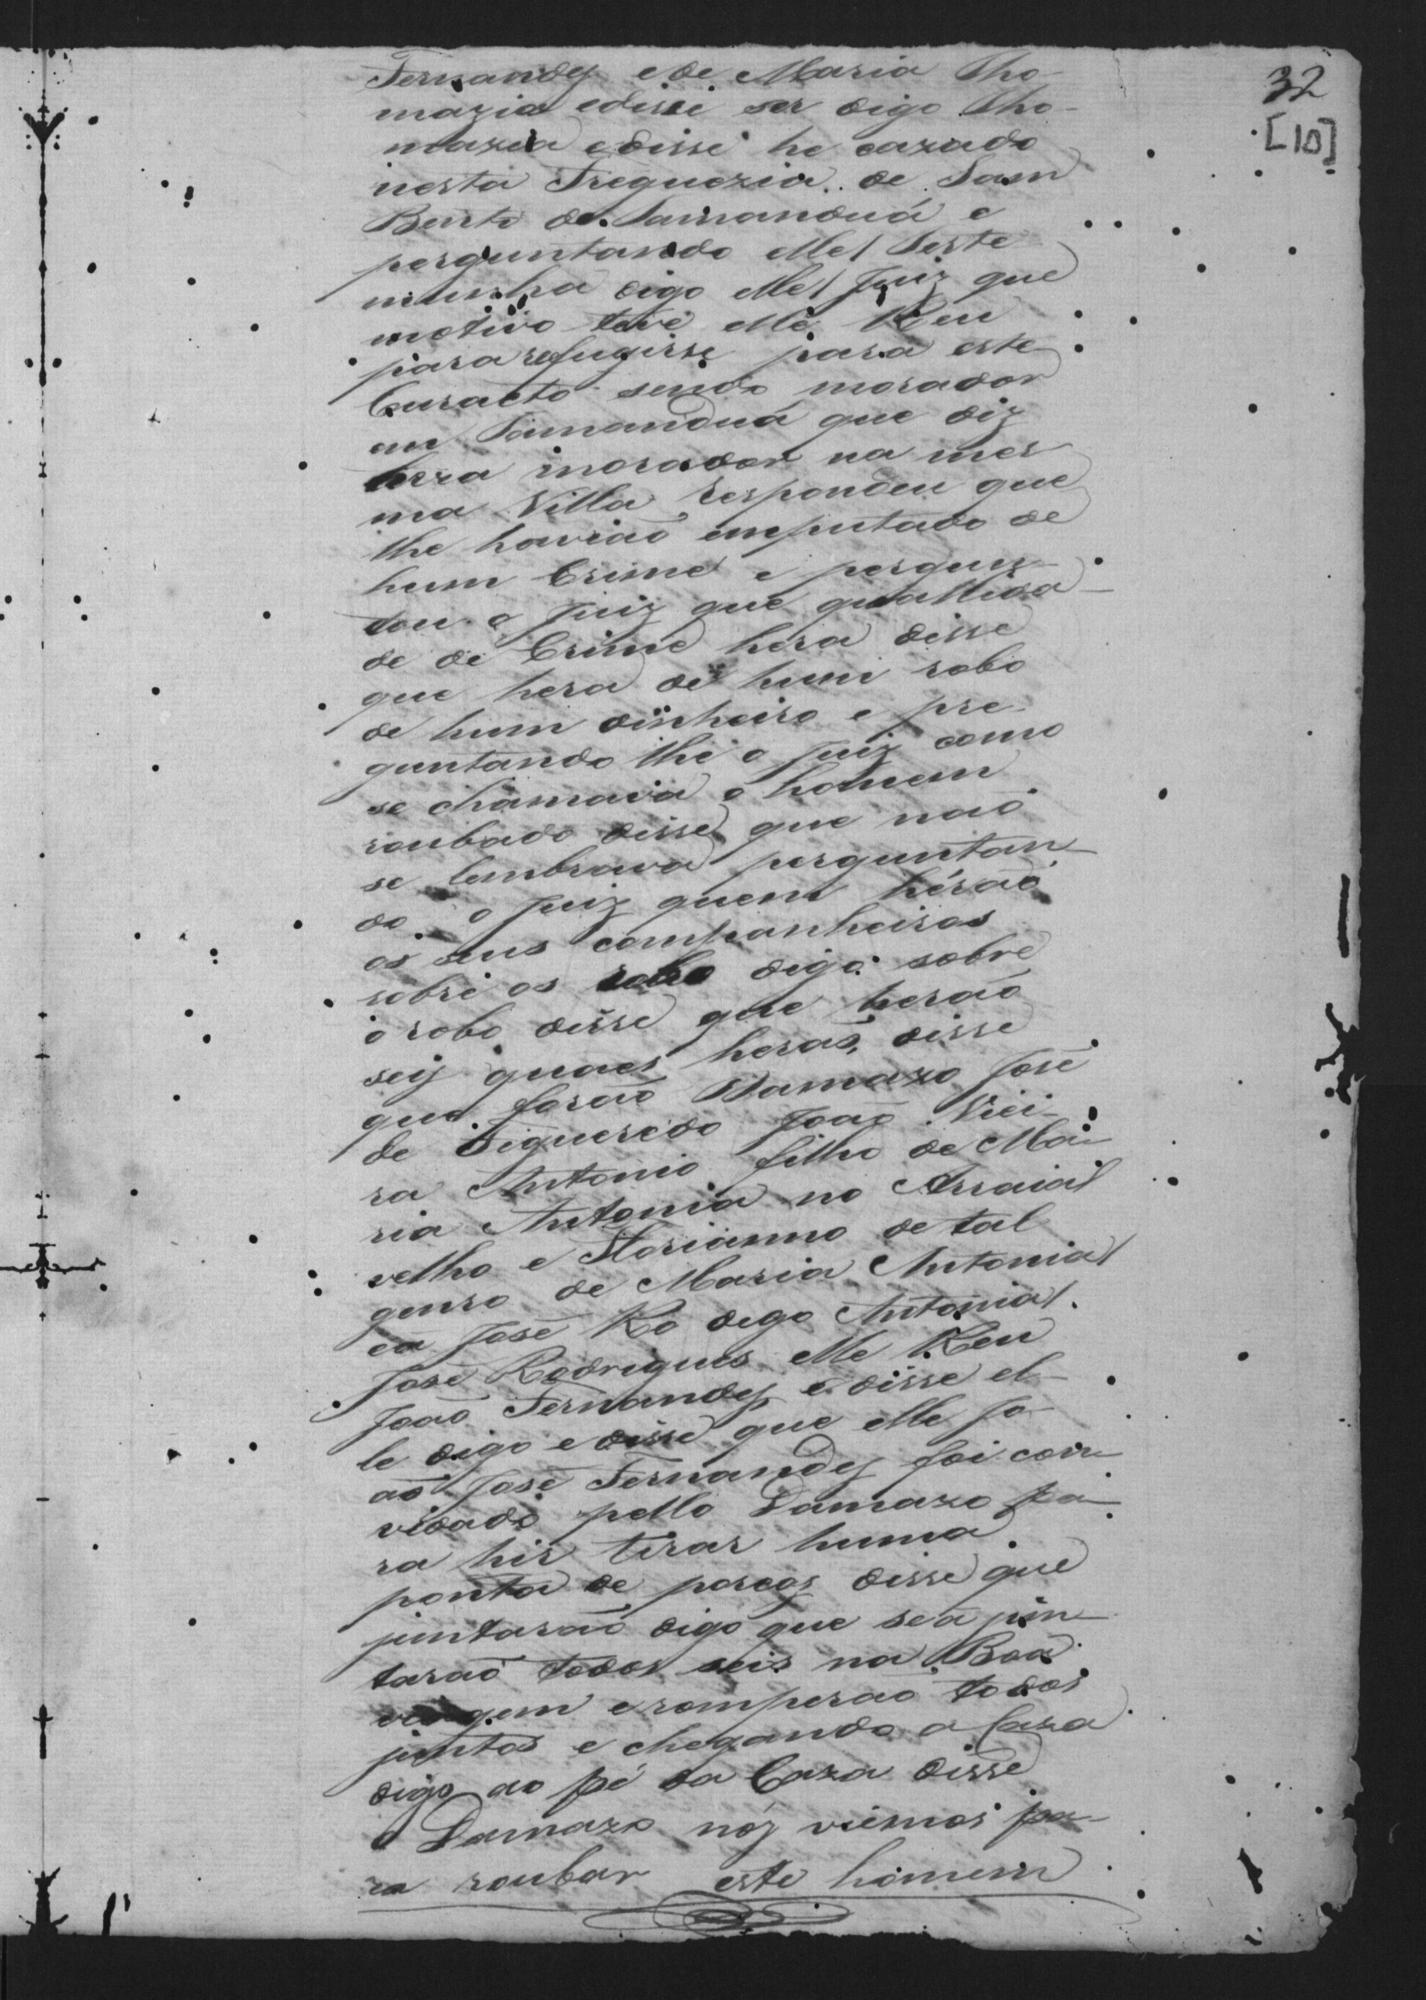 32
[10]
Fernandes e de Maria Tho-
mazia edisse ser digo Tho-
mazia edisse he cazado
nesta Freguezia de Sam
Bento do Tamanduá e
perguntando elle Teste
munha digo elle Juiz que
motivo teve elle Reu
para refugirse para este
Curacto sendo morador
em Tamanduá que diz
hera morador na mes
ma Villa respondeu que
lhe haviaõ imputado de
hum Crime e pergun-
tou o Juiz que quallida-
de de Crime hera disse
que hera de hum robo
de hum dinheiro e pre-
guntando lhe o Juiz como
se chamava o homem
roubado disse que naõ
se lembrava perguntan
do o Juiz quem héraõ
os seus companheiros
sobre os robo digo sobre
o robo disse que heraõ
seis quaes heraõ, disse
que foraõ Damazo José
de Figueredo Joaõ Viei-
ra Antonio filho de Ma-
ria Antonia no Arraial
velho e Florianno de tal
genro de Maria Antonia
ea José Ro digo Antonia
José Rodrigues elle Reu
Joaõ Fernandes e disse el-
le digo e disse que elle Jo-
aõ José Fernandes foi con-
vidado pello Damazo pa-
ra hir tirar huma
ponta de porcos disse que
juntaraõ digo que se a jun-
taraõ todos seis na Boa
vargem e romperaõ todos
juntos e chegando a Caza
digo ao pé da Caza disse
o Damazo nós viemos pa-
ra roubar este homem